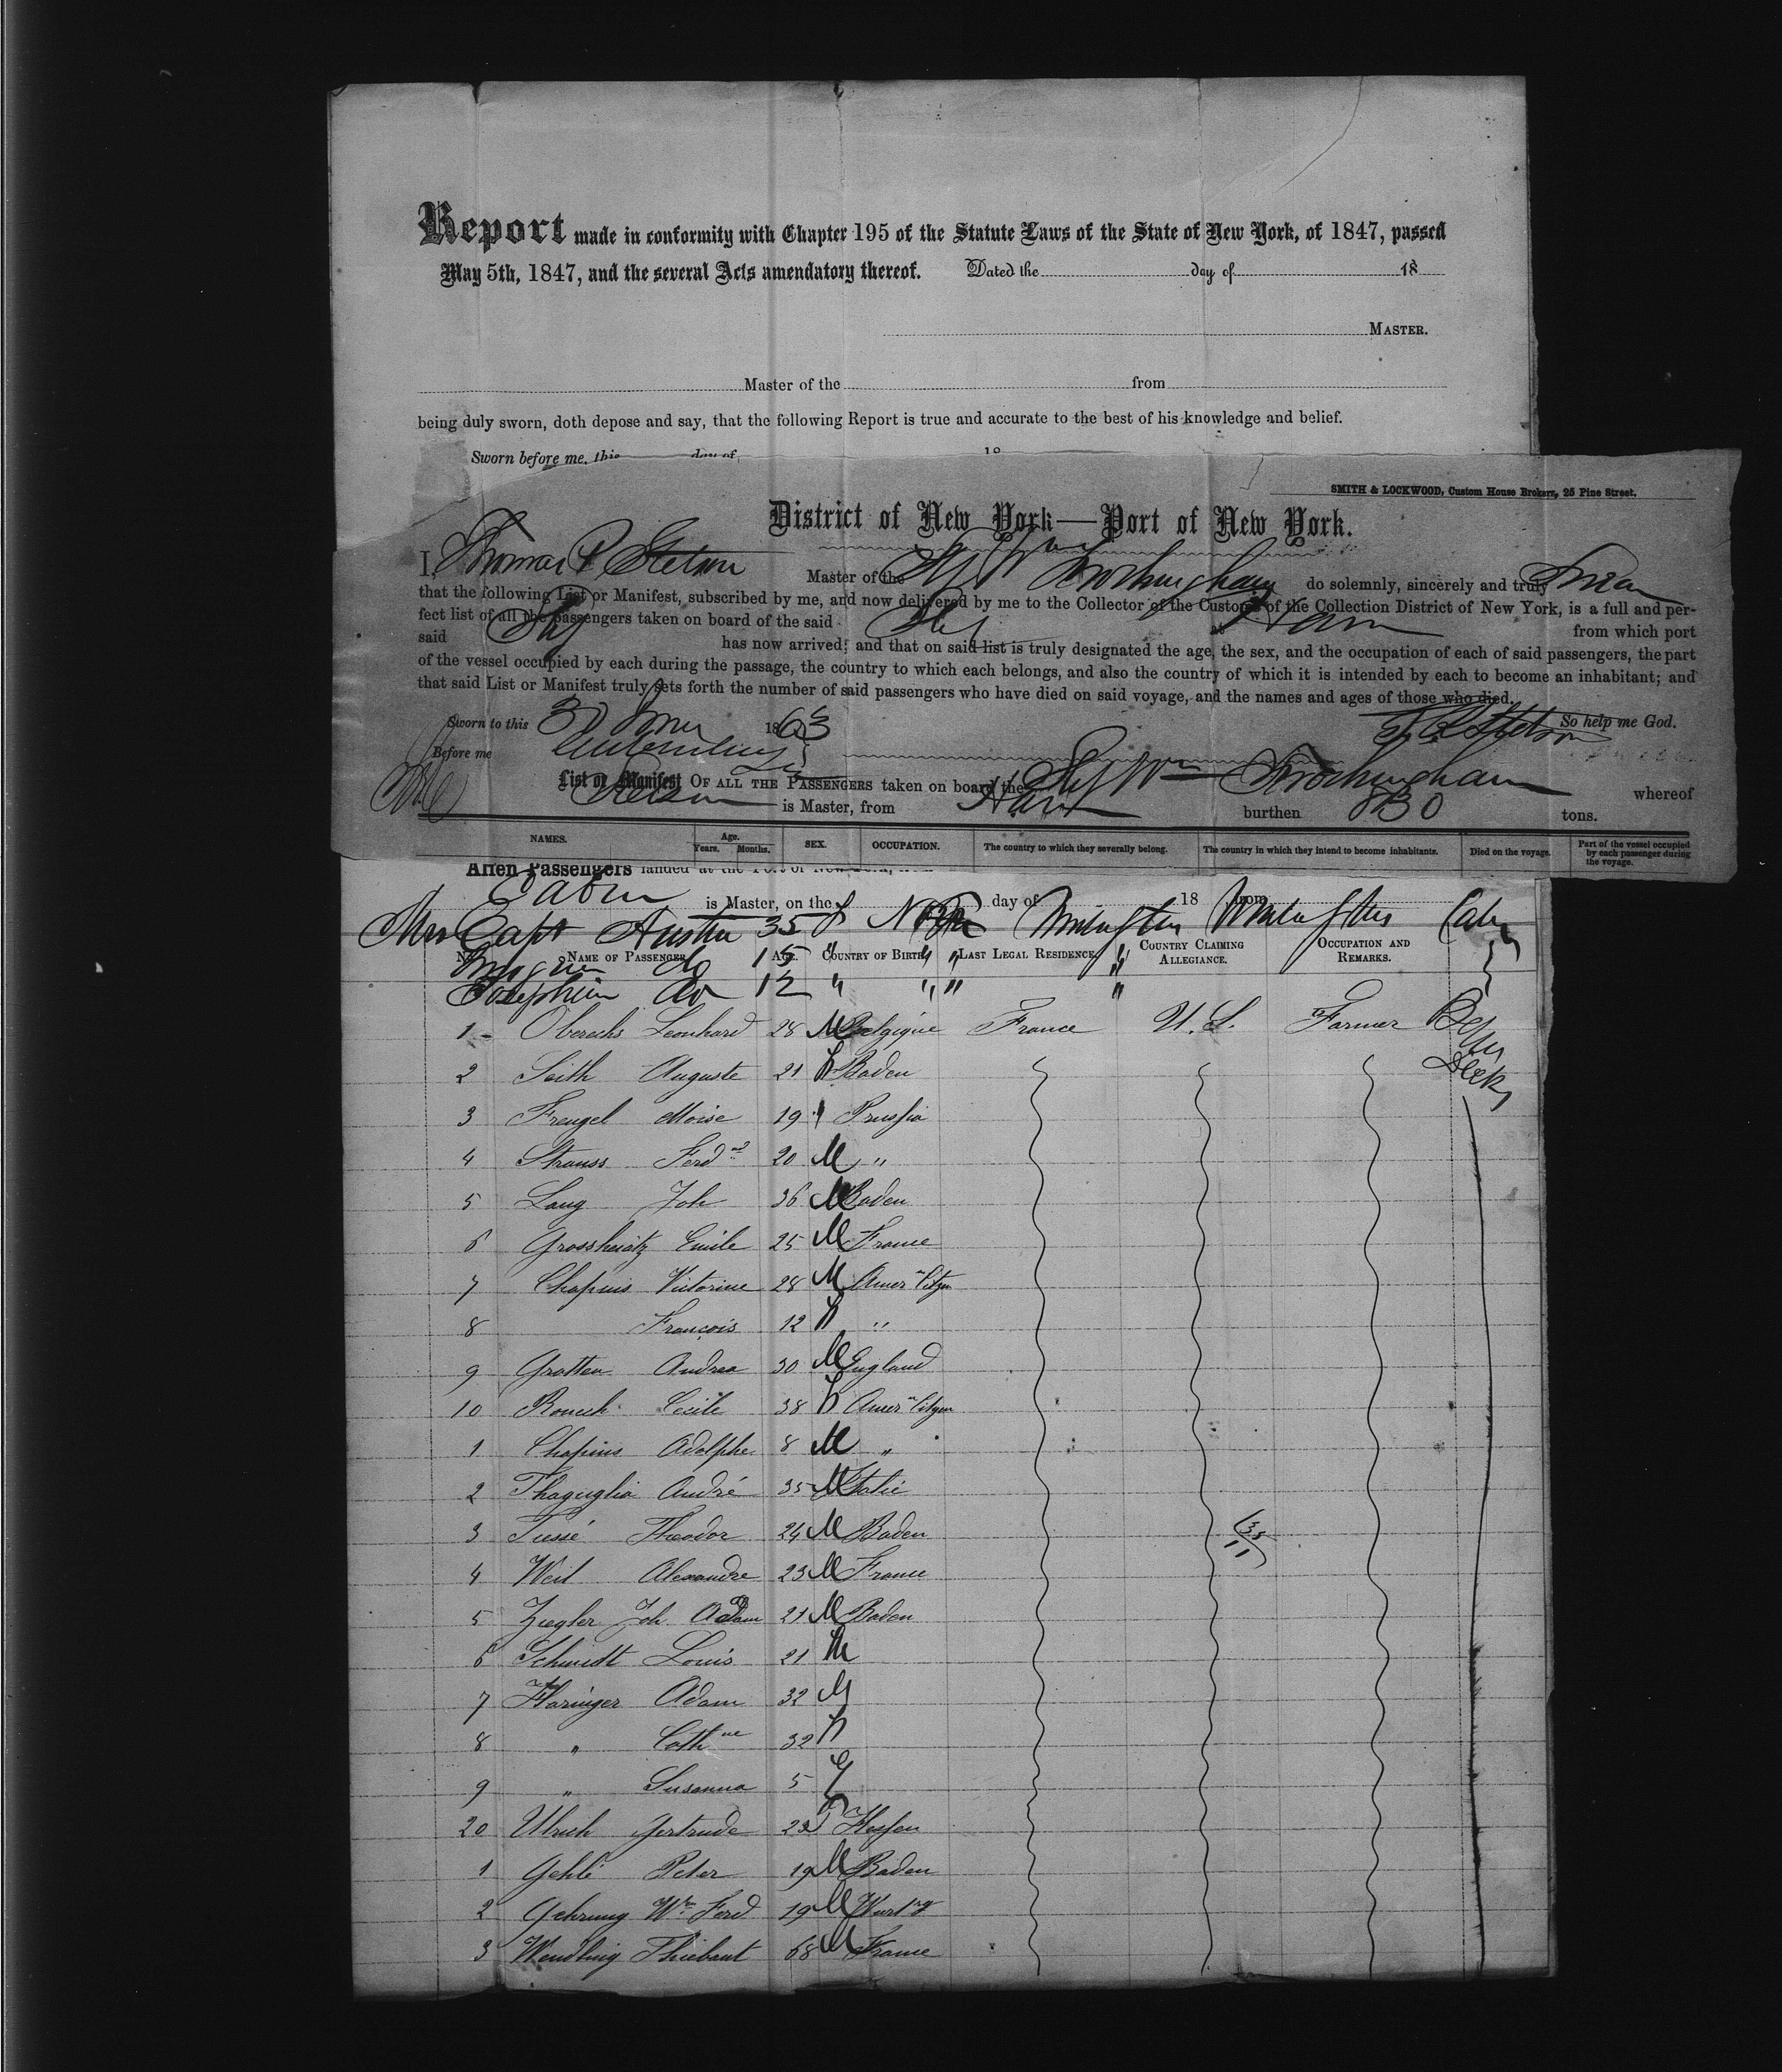 Report made in conformity with Chapter 195 of the Statute Laws of the State of New York, of 1847, passed
May 5th, 1847, and the several Acts amendatory thereof. Dated the day of 18
MASTER.
Master of the from
being duly sworn, doth depose and say, that the following Report is true and accurate to the best of his knowledge and belief.
Sworn before me, this day of 18
SMITH & LOCKWOOD, Custom House Brokers, 25 Pine Street.
District of New York—Port of New York.
I, Thomas P Stetson Master of the Ship Wm Frothingham do solemnly, sincerely and truly Swear
that the following List or Manifest, subscribed by me, and now delivered by me to the Collector of the Customs of the Collection District of New York, is a full and per-
fect list of all the passengers taken on board of the said Ship at Havre from which port
said Ship has now arrived; and that on said list is truly designated the age, the sex, and the occupation of each of said passengers, the part
of the vessel occupied by each during the passage, the country to which each belongs, and also the country of which it is intended by each to become an inhabitant; and
that said List or Manifest truly sets forth the number of said passengers who have died on said voyage, and the names and ages of those who died.
Sworn to this 30 1863 T P Stetson So help me God.
Before me
List or Manifest OF ALL THE PASSENGERS taken on board the Ship Wm Frothingham whereof
Stetson is Master, from Havre burthen 830 tons.
NAMES. Age. Years. Months. SEX. OCCUPATION. The country to which they severally belong. The country in which they intend to become inhabitants. Died on the voyage. Part of the vessel occupied by each passenger during the voyage.
Alien Passengers landed at the Port of New York,
Cabin is Master, on the day of 18 from
Mrs Capt Austin 35 f Cabin
No NAME OF PASSENGER. AGE. COUNTRY OF BIRTH. LAST LEGAL RESIDENCE. COUNTRY CLAIMING ALLEGIANCE. OCCUPATION AND REMARKS.
do 15 " " " "
Josephine do 12 " " " "
1 Oberechs Leonhard 28 M Belgique France U. S. Farmer
2 Seith Auguste 21 Baden Deck
3 Frengel Moise 19 " Prussia
4 Strauss Ferd nd 20 M "
5 Lang Joh 36 M Baden
6 Grossheintz Emile 25 M France
7 Chapuis Victorine 28 M Amer n Citzen
8 François 12 "
9 Gratten Andrea 30 M England
10 Roueck Cecile 38 Amer n Citzen
1 Chapuis Adolphe 8 M "
2 Thaguglia André 35 M Italie
3 Tiessé Theodor 24 M Baden
4 Weil Alexandre 23 M France
5 Ziegler Joh Adam 21 M Baden
6 Schmidt Louis 21 M
7 Haringer Adam 32 M
8 " Cath ne 32
9 " Susanna 5
20 Ulrich Gertrude 23 Hessen
1 Gehle Peter 19 M Baden
2 Gehrung Wm Ferd 19 M Wurtg
3 Wendling Thiebaut 68 M France